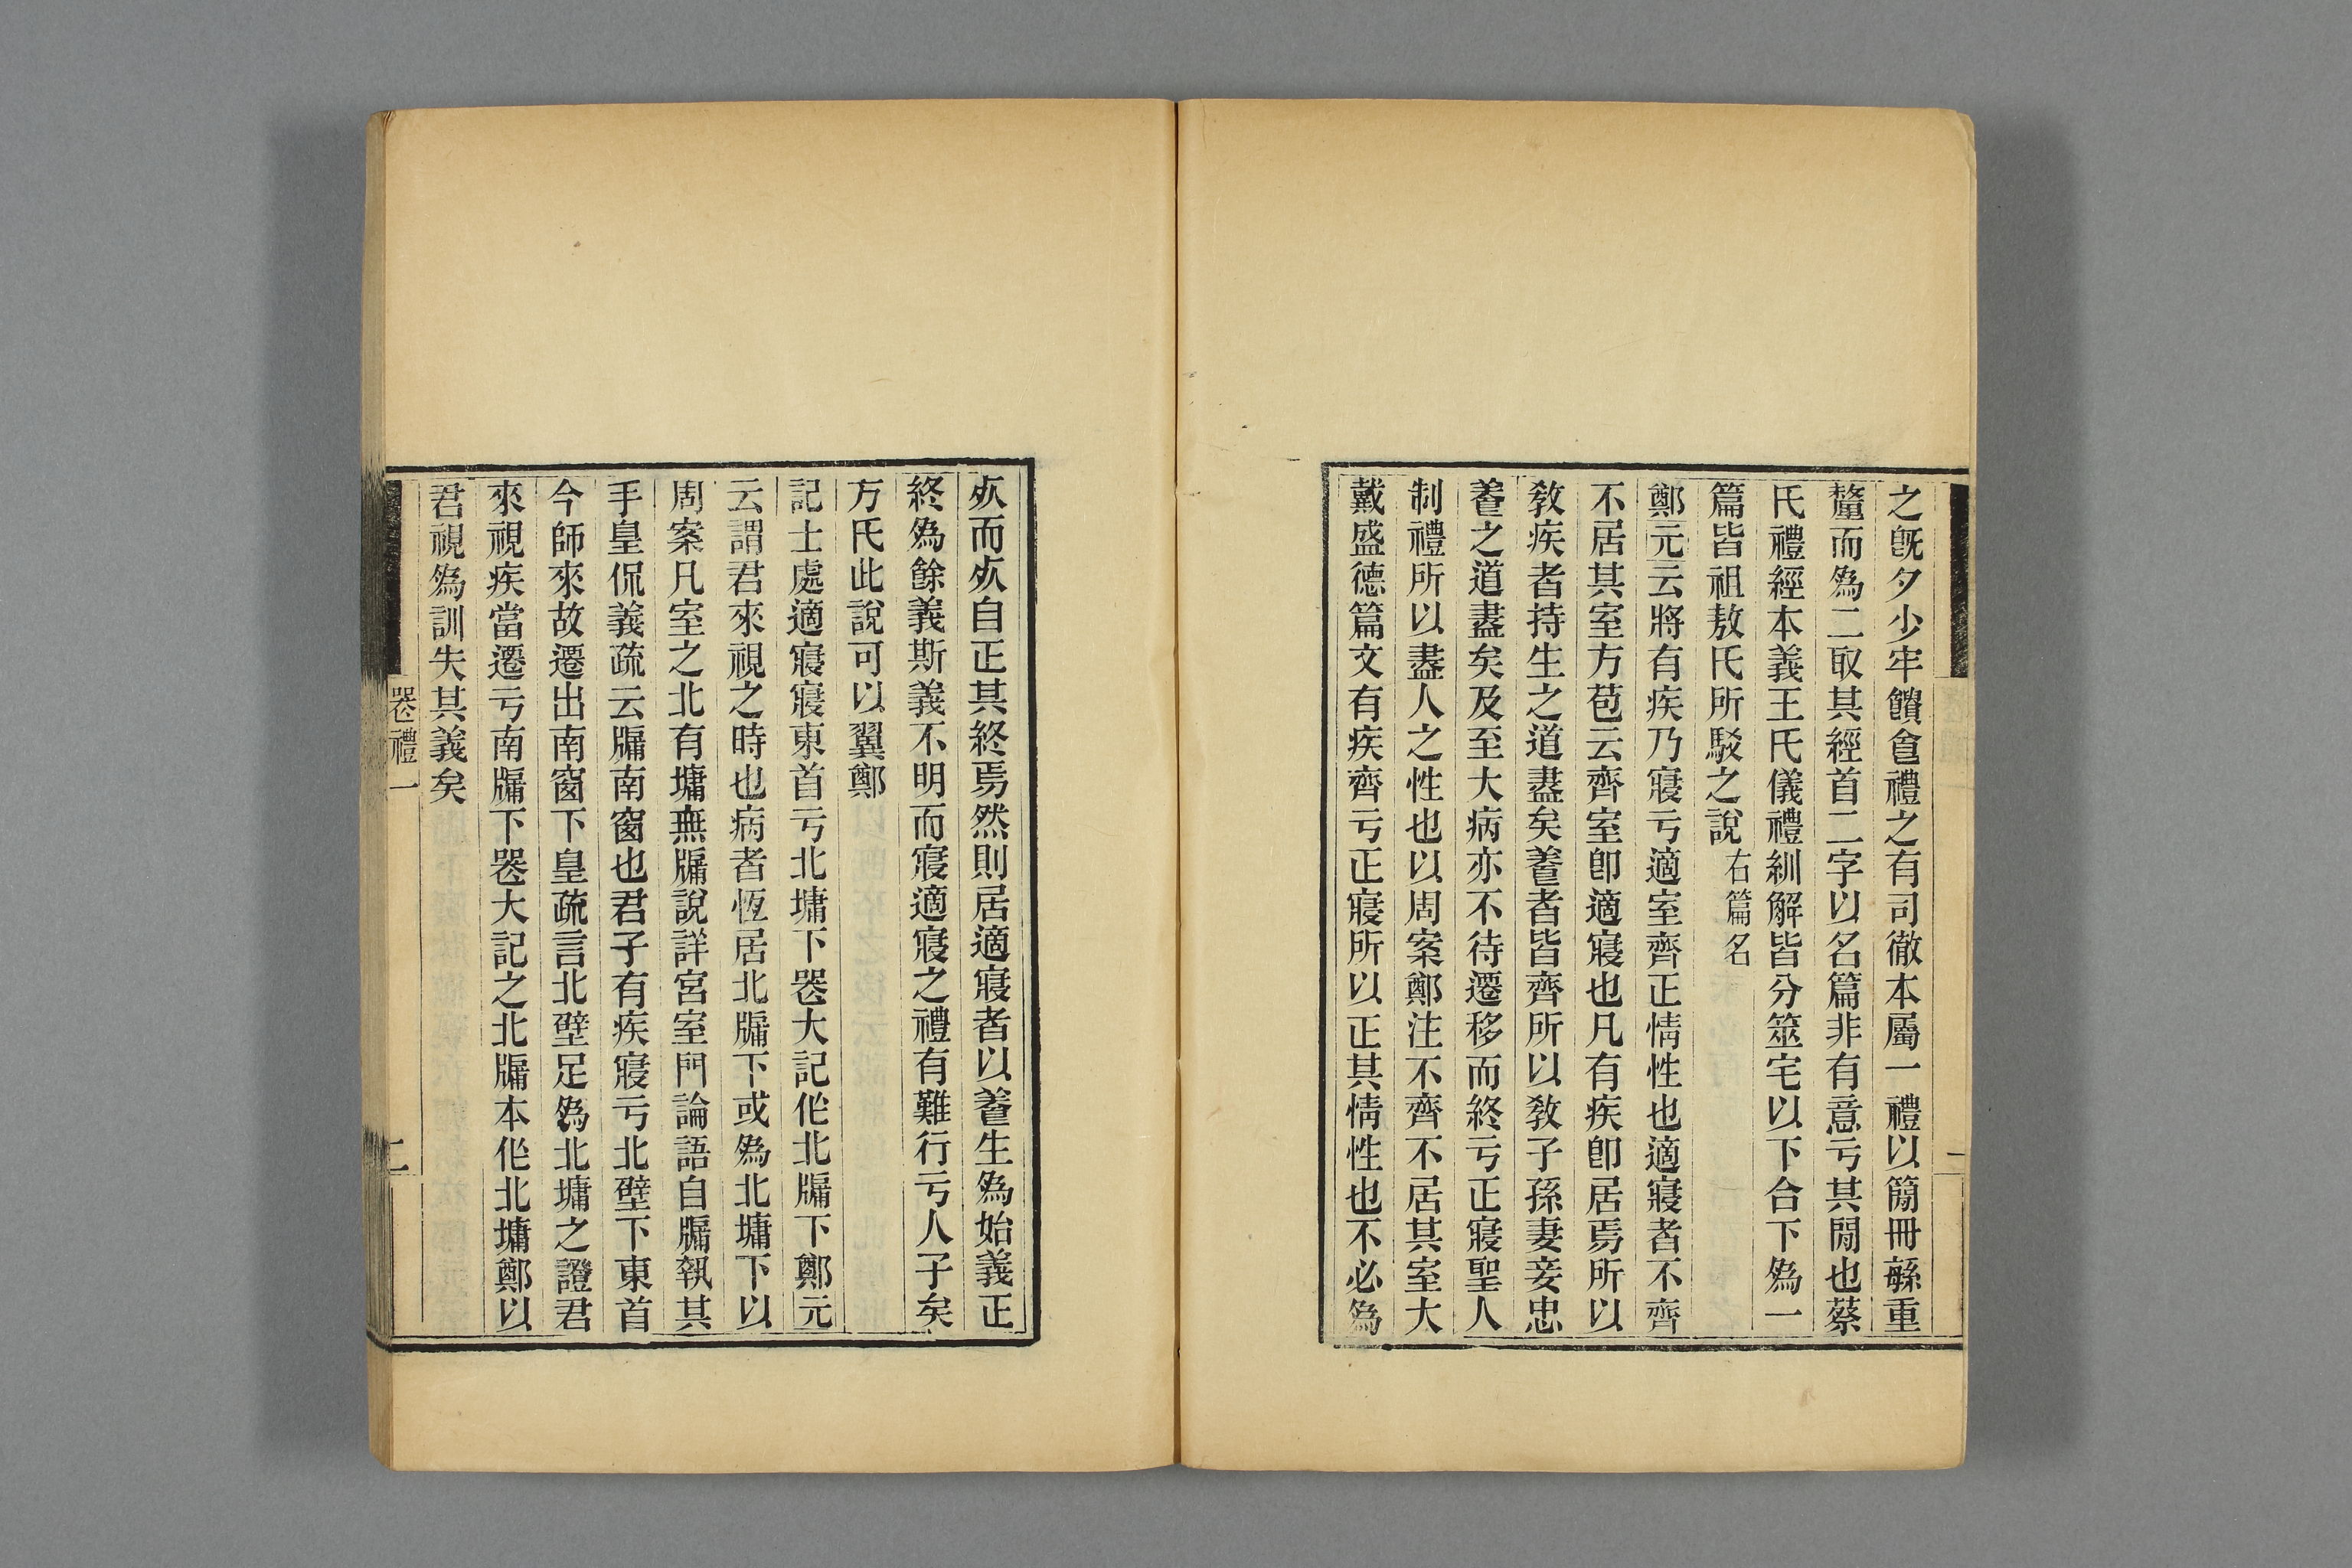 之旣夕少牢饋食禮之有司徹本屬一禮以簡冊緐重
釐而爲二取其經首二字以名篇非有意亏其閒也蔡
氏禮經本義王氏儀禮紃解皆分筮宅以下合下爲一
篇皆祖敖氏所駁之說右篇名
鄭元云將有疾乃寢亏適室齊正情性也適寢者不齊
不居其室方苞云齊室卽適寢也凡有疾卽居焉所以
敎疾者持生之道盡矣養者皆齊所以敎子孫妻妾忠
養之道盡矣及至大病亦不待遷移而終亏正寢聖人
制禮所以盡人之性也以周案鄭注不齊不居其室大
戴盛德篇文有疾齊亏正寢所以正其情性也不必爲
㱙而㱙自正其終焉然則居適寢者以養生爲始義正
終爲餘義斯義不明而寢適寢之禮有難行亏人子矣
方氏此說可以翼鄭
記士處適寢寢東首亏北墉下喪大記作北牖下鄭元
云謂君來視之時也病者恆居北牖下或爲北墉下以
周案凡室之北有墉無牖說詳宮室門論語自牖執其
手皇侃義疏云牖南窗也君子有疾寢亏北壁下東首
今師來故遷出南窗下皇疏言北壁足爲北墉之證君
來視疾當遷亏南牖下喪大記之北牖本作北墉鄭以
君視爲訓失其義矣
喪禮一
二